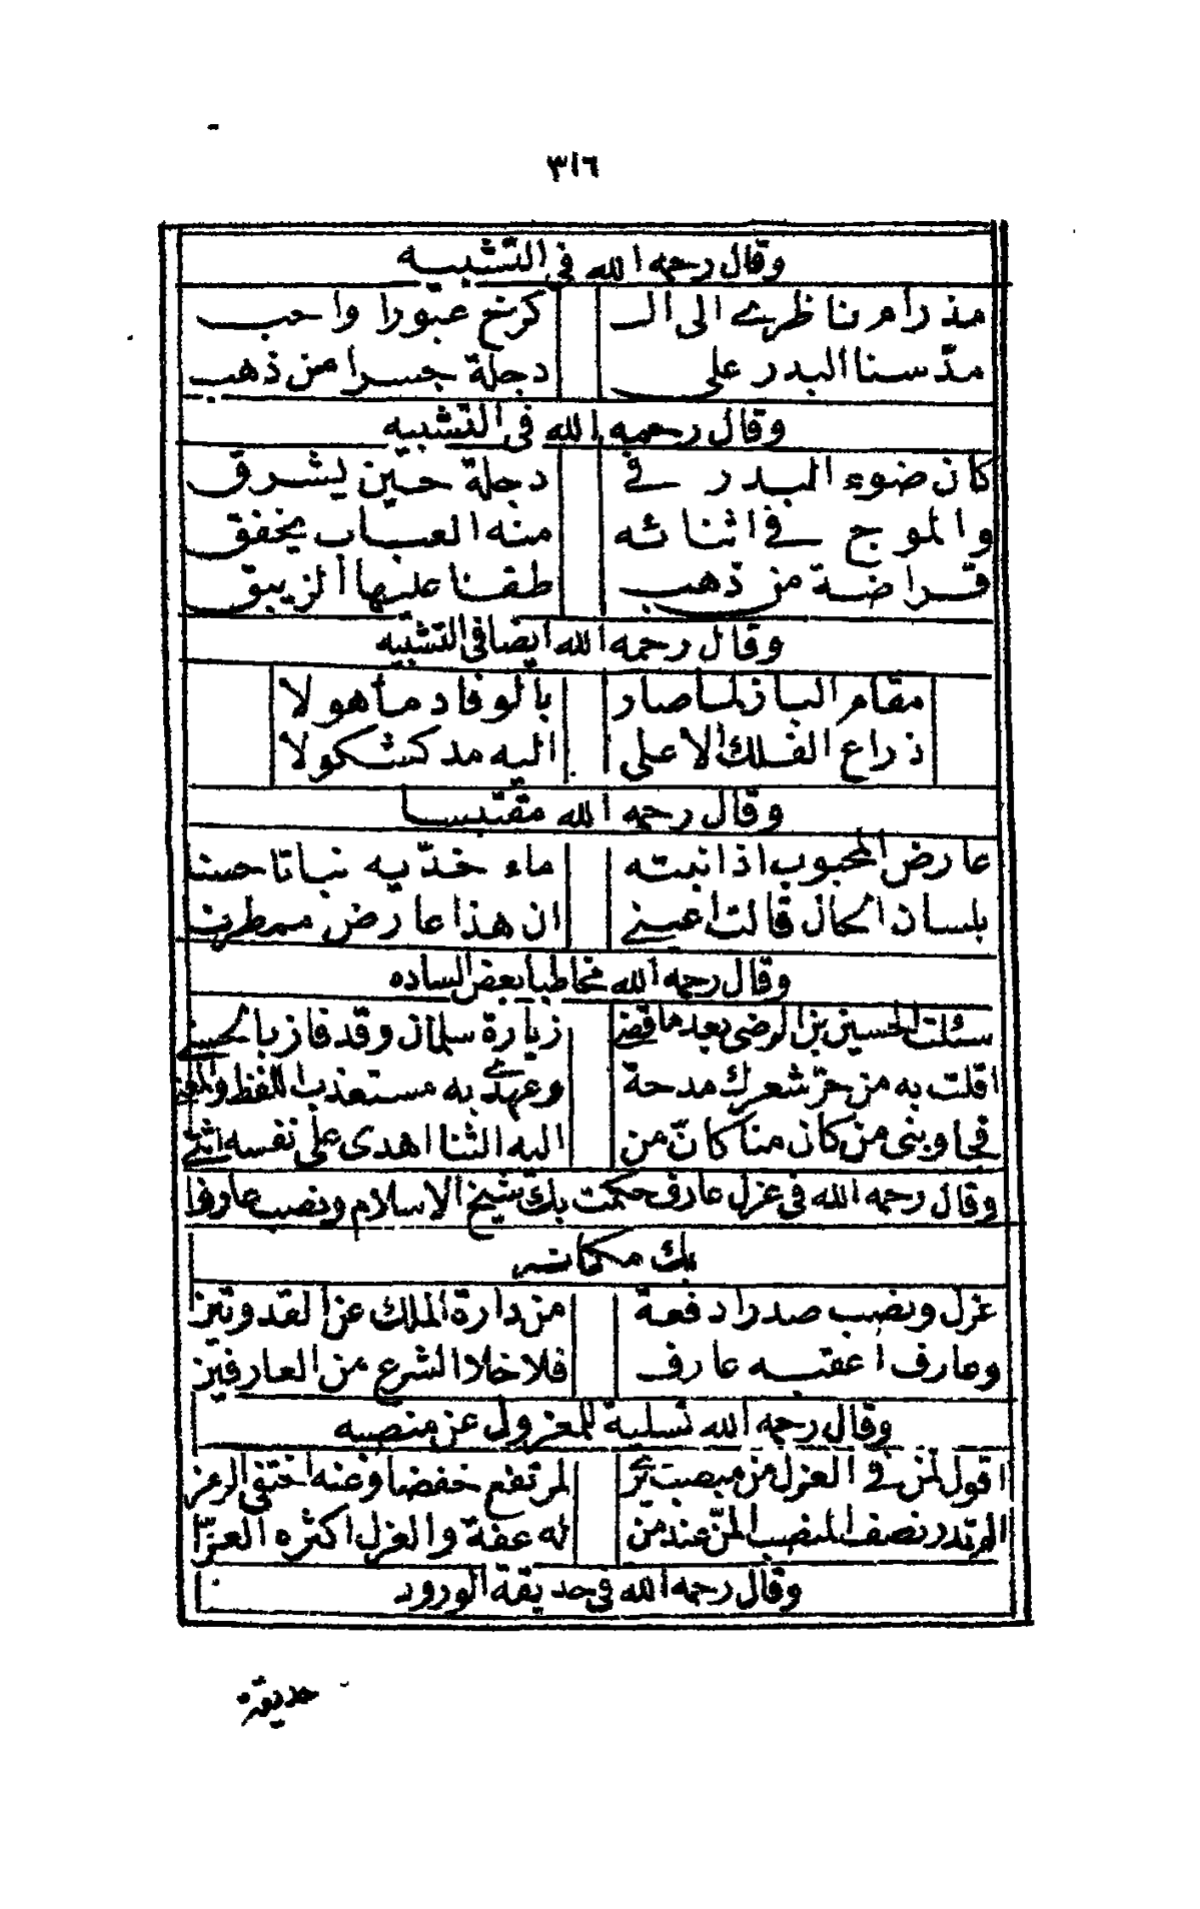 ٣١٦
وقال رحمه الله في التشبيه
مذ رام ناظري الى الـ كرخ عبورا واحب
مدّ سنا البدر على دجلة جسرا من ذهب
وقال رحمه الله في التشبيه
كان ضوء البدر في دجلة حين يشرق
والموج في اثنائه منه العباب يخفق
قراضة من ذهب طفا عليها الزيبق
وقال رحمه الله ايضا في التشبيه
مقام الباز لما صار بالوفاد ماهولا
ذراع الفلك الاعلى اليه مد كشكولا
وقال رحمه الله مقتبسا
عارض المحبوب اذ انبته ماء خدّيه نباتا حسنا
بلسان الحال قالت اعيني ان هذا عارض ممطرنا
وقال رحمه الله مخاطبا بعض الساده
سئلت الحسين بن الرضي بعدما قضى زيارة سلمان وقد فاز بالحسنى
اقلت به من حرّ شعرك مدحة وعهدي به مستعذب اللفظ والمعنى
فجاوبني من كان منا كانّ من اليه الثنا اهدى على نفسه اثنى
وقال رحمه الله في عزل عارف حكمت بك شيخ الاسلام ونصب عارف
بك مكانه
عزل ونصب صدرا دفعة من دارة الملك عن القد وتين
وعارف اعقبه عارف فلا خلا الشرع من العارفين
وقال رحمه الله تسلية للمعزول عن منصبه
اقول لمن في العزل من منصب ترى لمرتفع خفضا وعنه اختفى الرمز
الم تدر نصف المنصب المنّ عند من له عفة والعزل اكثره العزّ
وقال رحمه الله في حديقة الورود
حديقة